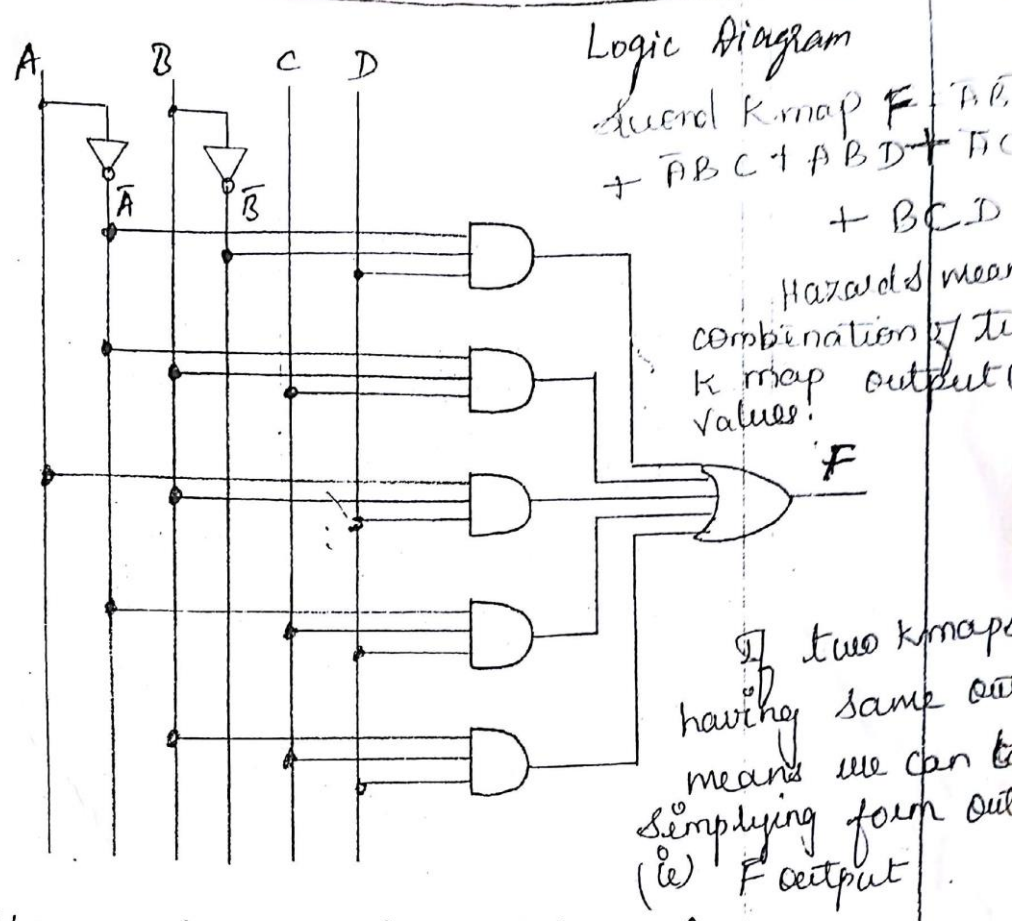 A B C D
Logic Diagram
K map F = A̅B̅
+ A̅BC + ABD + A̅C
+ BCD
A̅ B̅
Hazards mean
combination of
K map output
values.
F
If two kmaps
having same out
means we can
Simplying form out
(ie) F output